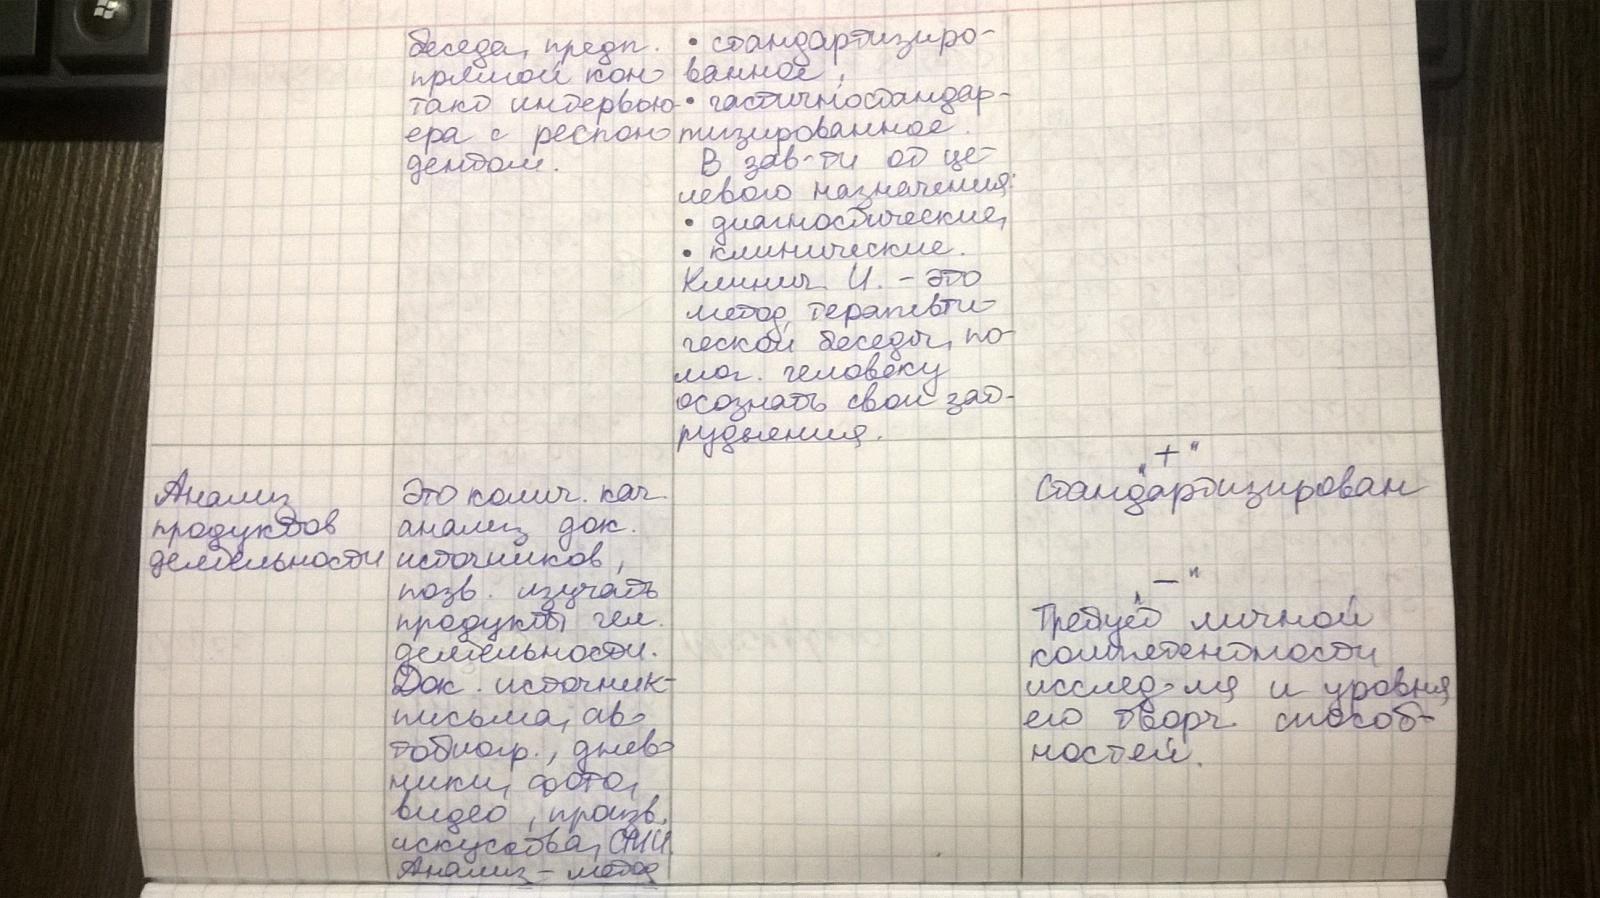 беседа, предп.
прямой кон-
такт интервью-
ера с респон-
дентом.
• стандартизиро-
ванное,
• частичностандар-
тизированное.
В зав-ти от це-
левого назначения:
• диагностические,
• клинические.
Клинич. И. - это
метод терапевти-
ческой беседы, по-
мог. человеку
осознать свои зат-
руднения.
Анализ
продуктов
деятельности
Это колич. кач.
анализ док.
источников,
позв. изучать
продукты чел.
деятельности.
Док. источник-
письма, ав-
тобиогр., днев-
ники, фото,
видео, произв.
искусства, СМИ.
Анализ - метод
„+"
Стандартизирован
„-"
Требует личной
компетентности
исслед-ля и уровня
его творч. способ-
ностей.